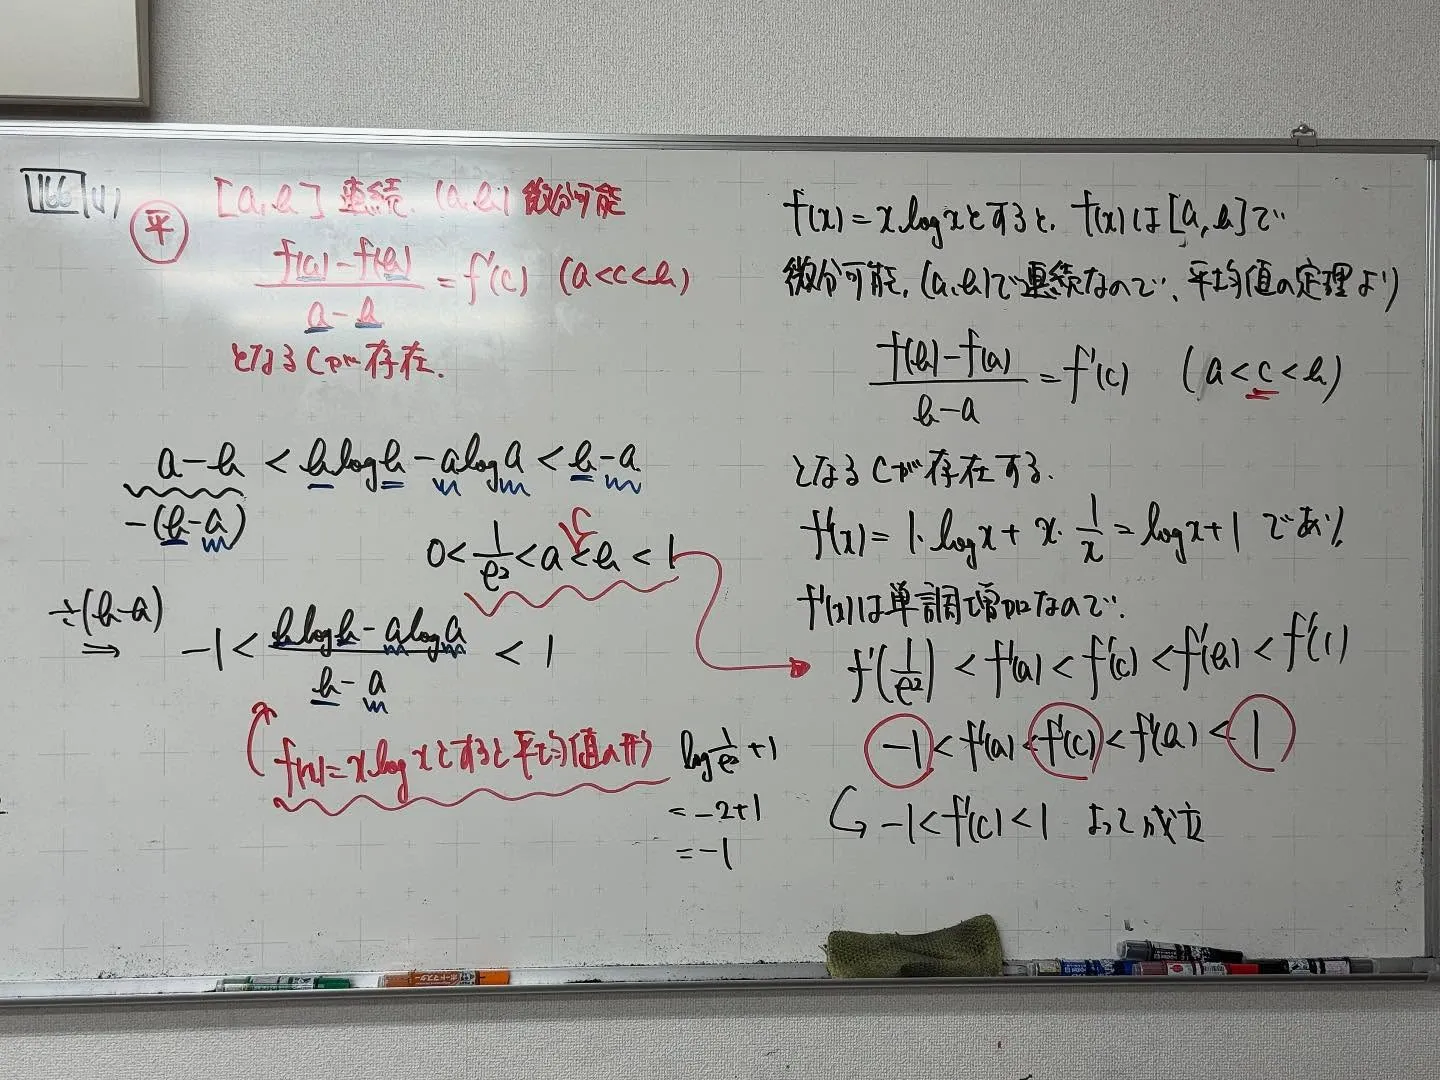 166 (1)
平
[a, b] 連続. (a, b) 微分可能
f(a)-f(b)/a-b = f'(c) (a<c<b)
となるcが存在.
a-b < b log b - a log a < b-a
-(b-a)
0 < 1/e² < a < b < 1
c
÷(b-a)
⇒ -1 < b log b - a log a / b-a < 1
f(x)=x log xとすると平均値の形
log 1/e² + 1
= -2+1
= -1
f(x)=x log xとすると, f(x)は[a, b]で
微分可能, (a, b)で連続なので, 平均値の定理より
f(b)-f(a)/b-a = f'(c) (a<c<b)
となるcが存在する.
f'(x)= 1・log x + x・1/x = log x+1 であり
f'(x)は単調増加なので,
f'(1/e²) < f'(a) < f'(c) < f'(b) < f'(1)
-1 < f'(a) < f'(c) < f'(a) < 1
-1 < f'(c) < 1 よって成立